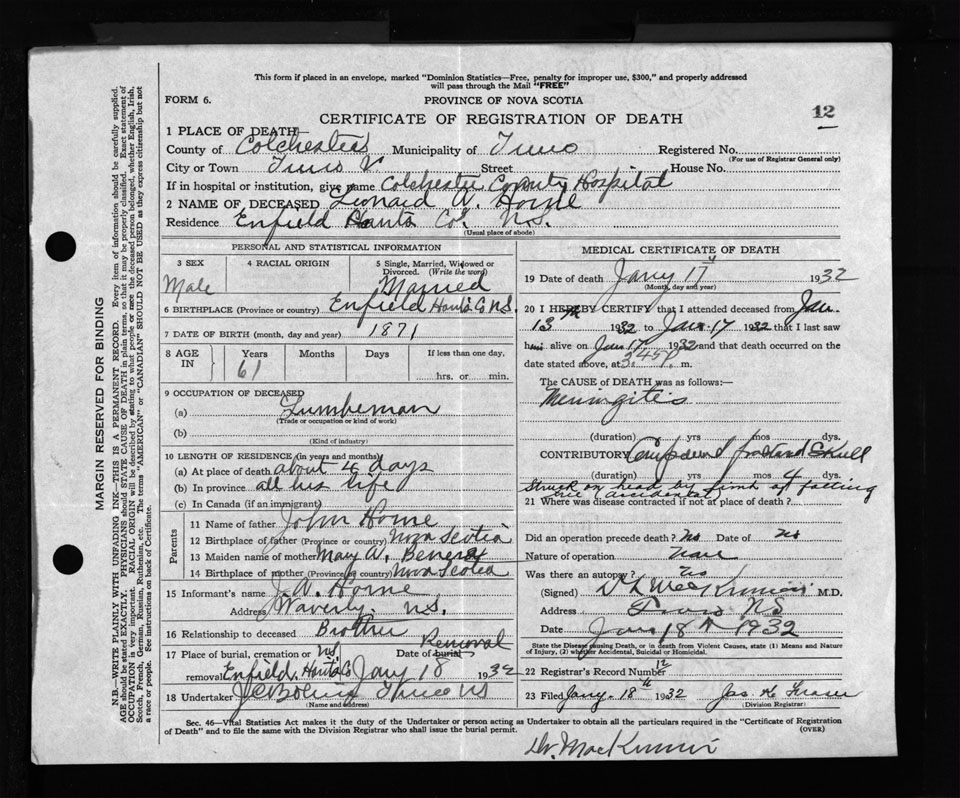 This form if placed in an envelope, marked "Dominion Statistics—Free, penalty for improper use, $300," and properly addressed
will pass through the Mail "FREE"
FORM 6.
PROVINCE OF NOVA SCOTIA
12
CERTIFICATE OF REGISTRATION OF DEATH
1 PLACE OF DEATH—
County of Colchester Municipality of Truro Registered No.
(For use of Registrar General only)
City or Town Truro Street House No.
If in hospital or institution, give name Colchester County Hospital
2 NAME OF DECEASED Leonard A. Horne
Residence Enfield Hants Co. N.S.
(Usual place of abode)
PERSONAL AND STATISTICAL INFORMATION
3 SEX 4 RACIAL ORIGIN 5 Single, Married, Widowed or
Divorced. (Write the word)
Male Married
6 BIRTHPLACE (Province or country) Enfield Hants Co N.S.
7 DATE OF BIRTH (month, day and year) 1871
8 AGE IN Years Months Days If less than one day,
61 hrs. or min.
9 OCCUPATION OF DECEASED
(a) Lumberman
(Trade or occupation or kind of work)
(b)
(Kind of industry)
10 LENGTH OF RESIDENCE (in years and months)
(a) At place of death about 4 days
(b) In province all his life
(c) In Canada (if an immigrant)
Parents
11 Name of father John Horne
12 Birthplace of father (Province or country) Nova Scotia
13 Maiden name of mother Mary A.
14 Birthplace of mother (Province or country) Nova Scotia
15 Informant's name J. W. Horne
Address Waverly N.S.
16 Relationship to deceased Brother
17 Place of burial, cremation or Date of burial Removal
removal Enfield, Hants Co Jany 18 1932
18 Undertaker
(Name and address)
MEDICAL CERTIFICATE OF DEATH
19 Date of death Jany 17 1932
(Month, day and year)
20 I HEREBY CERTIFY that I attended deceased from Jan.
13 1932 to Jan. 17 1932 that I last saw
him alive on Jan 17 1932 and that death occurred on the
date stated above, at 3.45 P. m.
The CAUSE OF DEATH was as follows:—
Meningitis
(duration) yrs mos dys.
CONTRIBUTORY Compound fractured Skull
(duration) yrs mos 4 dys.
Struck on head by limb of falling
tree (accidental)
21 Where was disease contracted if not at place of death?
Did an operation precede death? No Date of no
Nature of operation None
Was there an autopsy? No
(Signed) M.D.
Address Truro NS
Date Jan 18th 1932
State the Disease causing Death, or in death from Violent Causes, state (1) Means and Nature
of Injury, (2) whether Accidental, Suicidal or Homicidal.
22 Registrar's Record Number 12
23 Filed Jany. 18th 1932 Jas. K. Fraser
(Division Registrar)
Sec. 46—Vital Statistics Act makes it the duty of the Undertaker or person acting as Undertaker to obtain all the particulars required in the "Certificate of Registration
of Death" and to file the same with the Division Registrar who shall issue the burial permit. (OVER)
Dr. MacKinnon
MARGIN RESERVED FOR BINDING
N.B.—WRITE PLAINLY WITH UNFADING INK—THIS IS A PERMANENT RECORD. Every item of information should be carefully supplied.
AGE should be stated EXACTLY. PHYSICIANS should STATE CAUSE OF DEATH in plain terms, so that it may be properly classified. Exact statement of
OCCUPATION is very important. RACIAL ORIGIN will be described by stating to what people or race the deceased person belonged, whether English, Irish,
Scotch, French, German, Russian, Ruthenian, etc. The terms "AMERICAN" or "CANADIAN" SHOULD NOT BE USED as they express citizenship but not
a race or people. See instructions on back of Certificate.